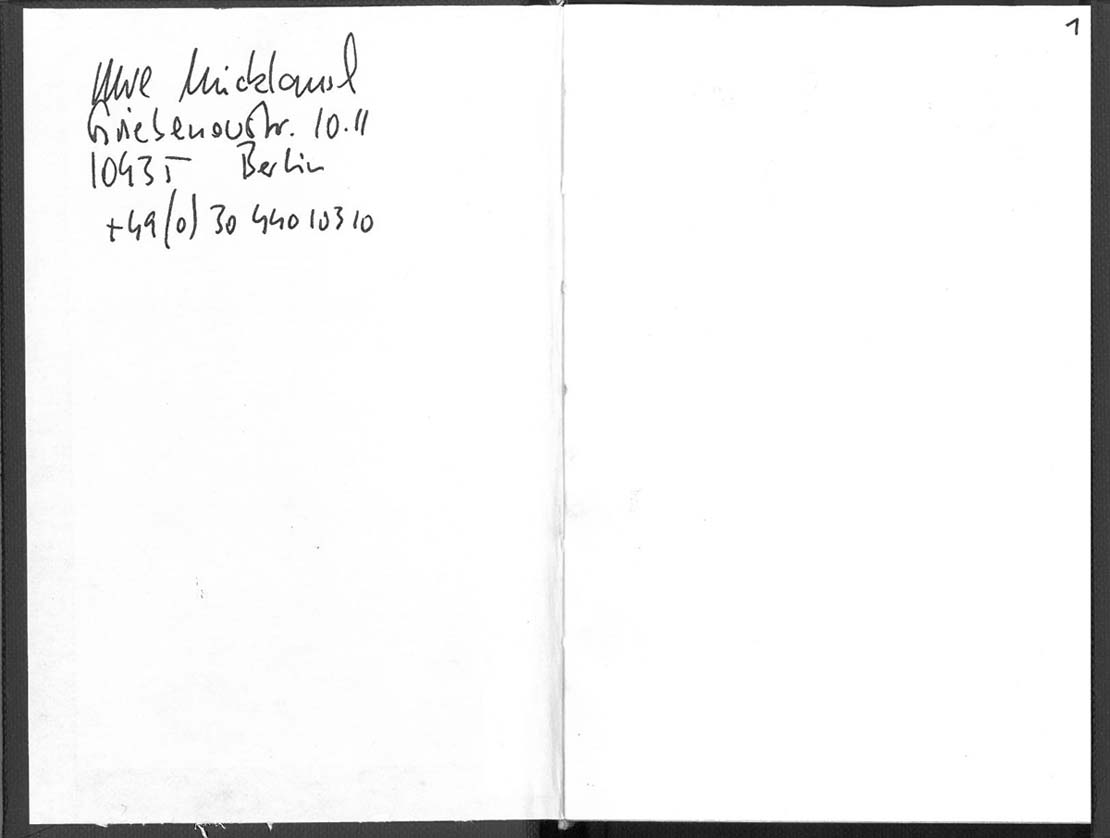 Uwe
Griebenowstr. 10.11
10435 Berlin
+49(0) 30 44010310
1